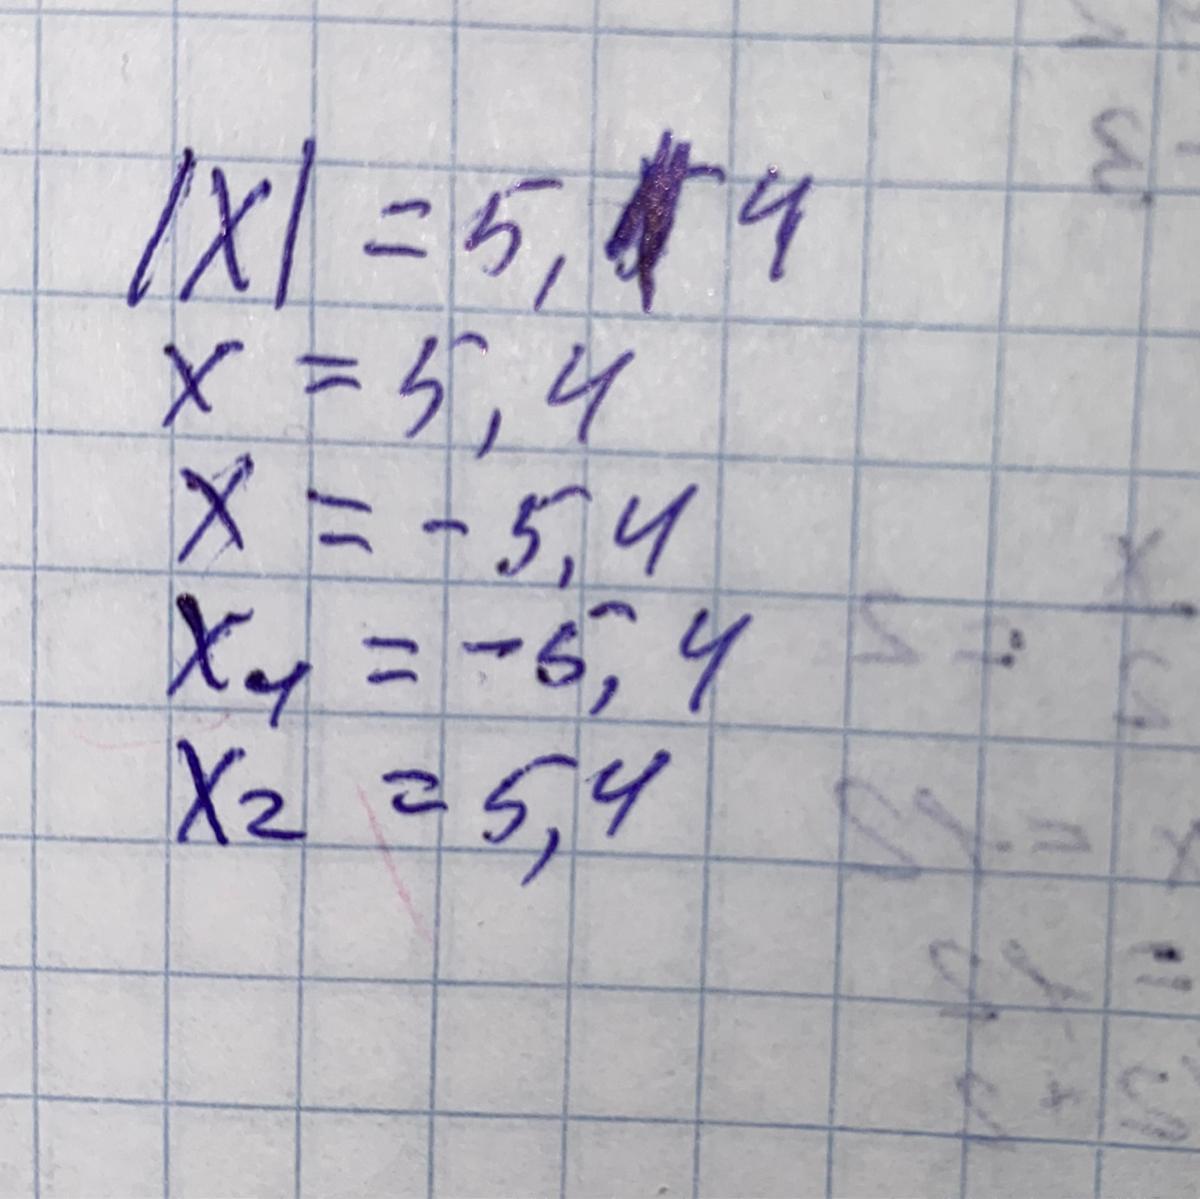 |x| = 5,4
x = 5,4
x = -5,4
x₁ = -5,4
x₂ = 5,4